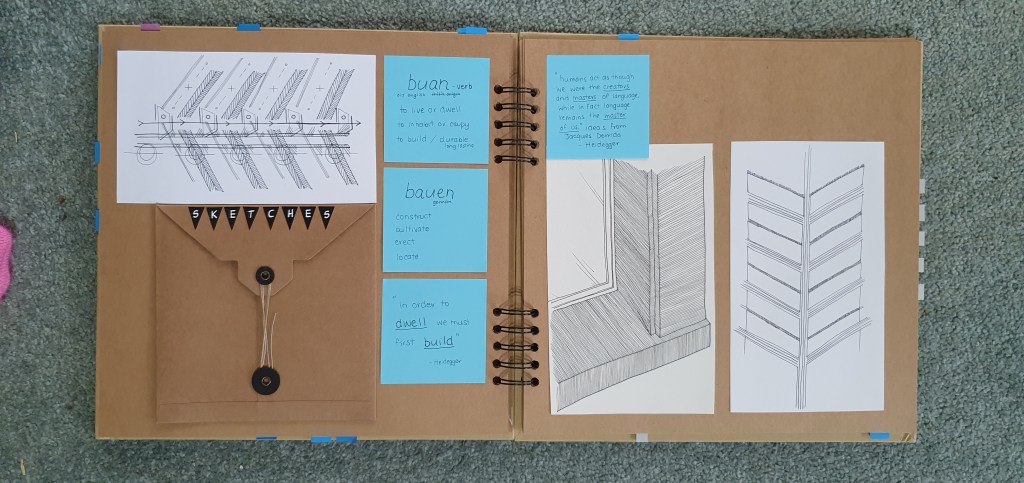 SKETCHES
buan - verb
old english
to live or dwell
to inhabit or ocupy
to build / durable
long lasting
bauen
german
construct
cultivate
erect
locate
"in order to
dwell we must
first build"
- Heidegger
"humans act as though
we were the creators
and masters of language,
while in fact language
remains the master
of us" ideas from
Jacques Derrida
- Heidegger